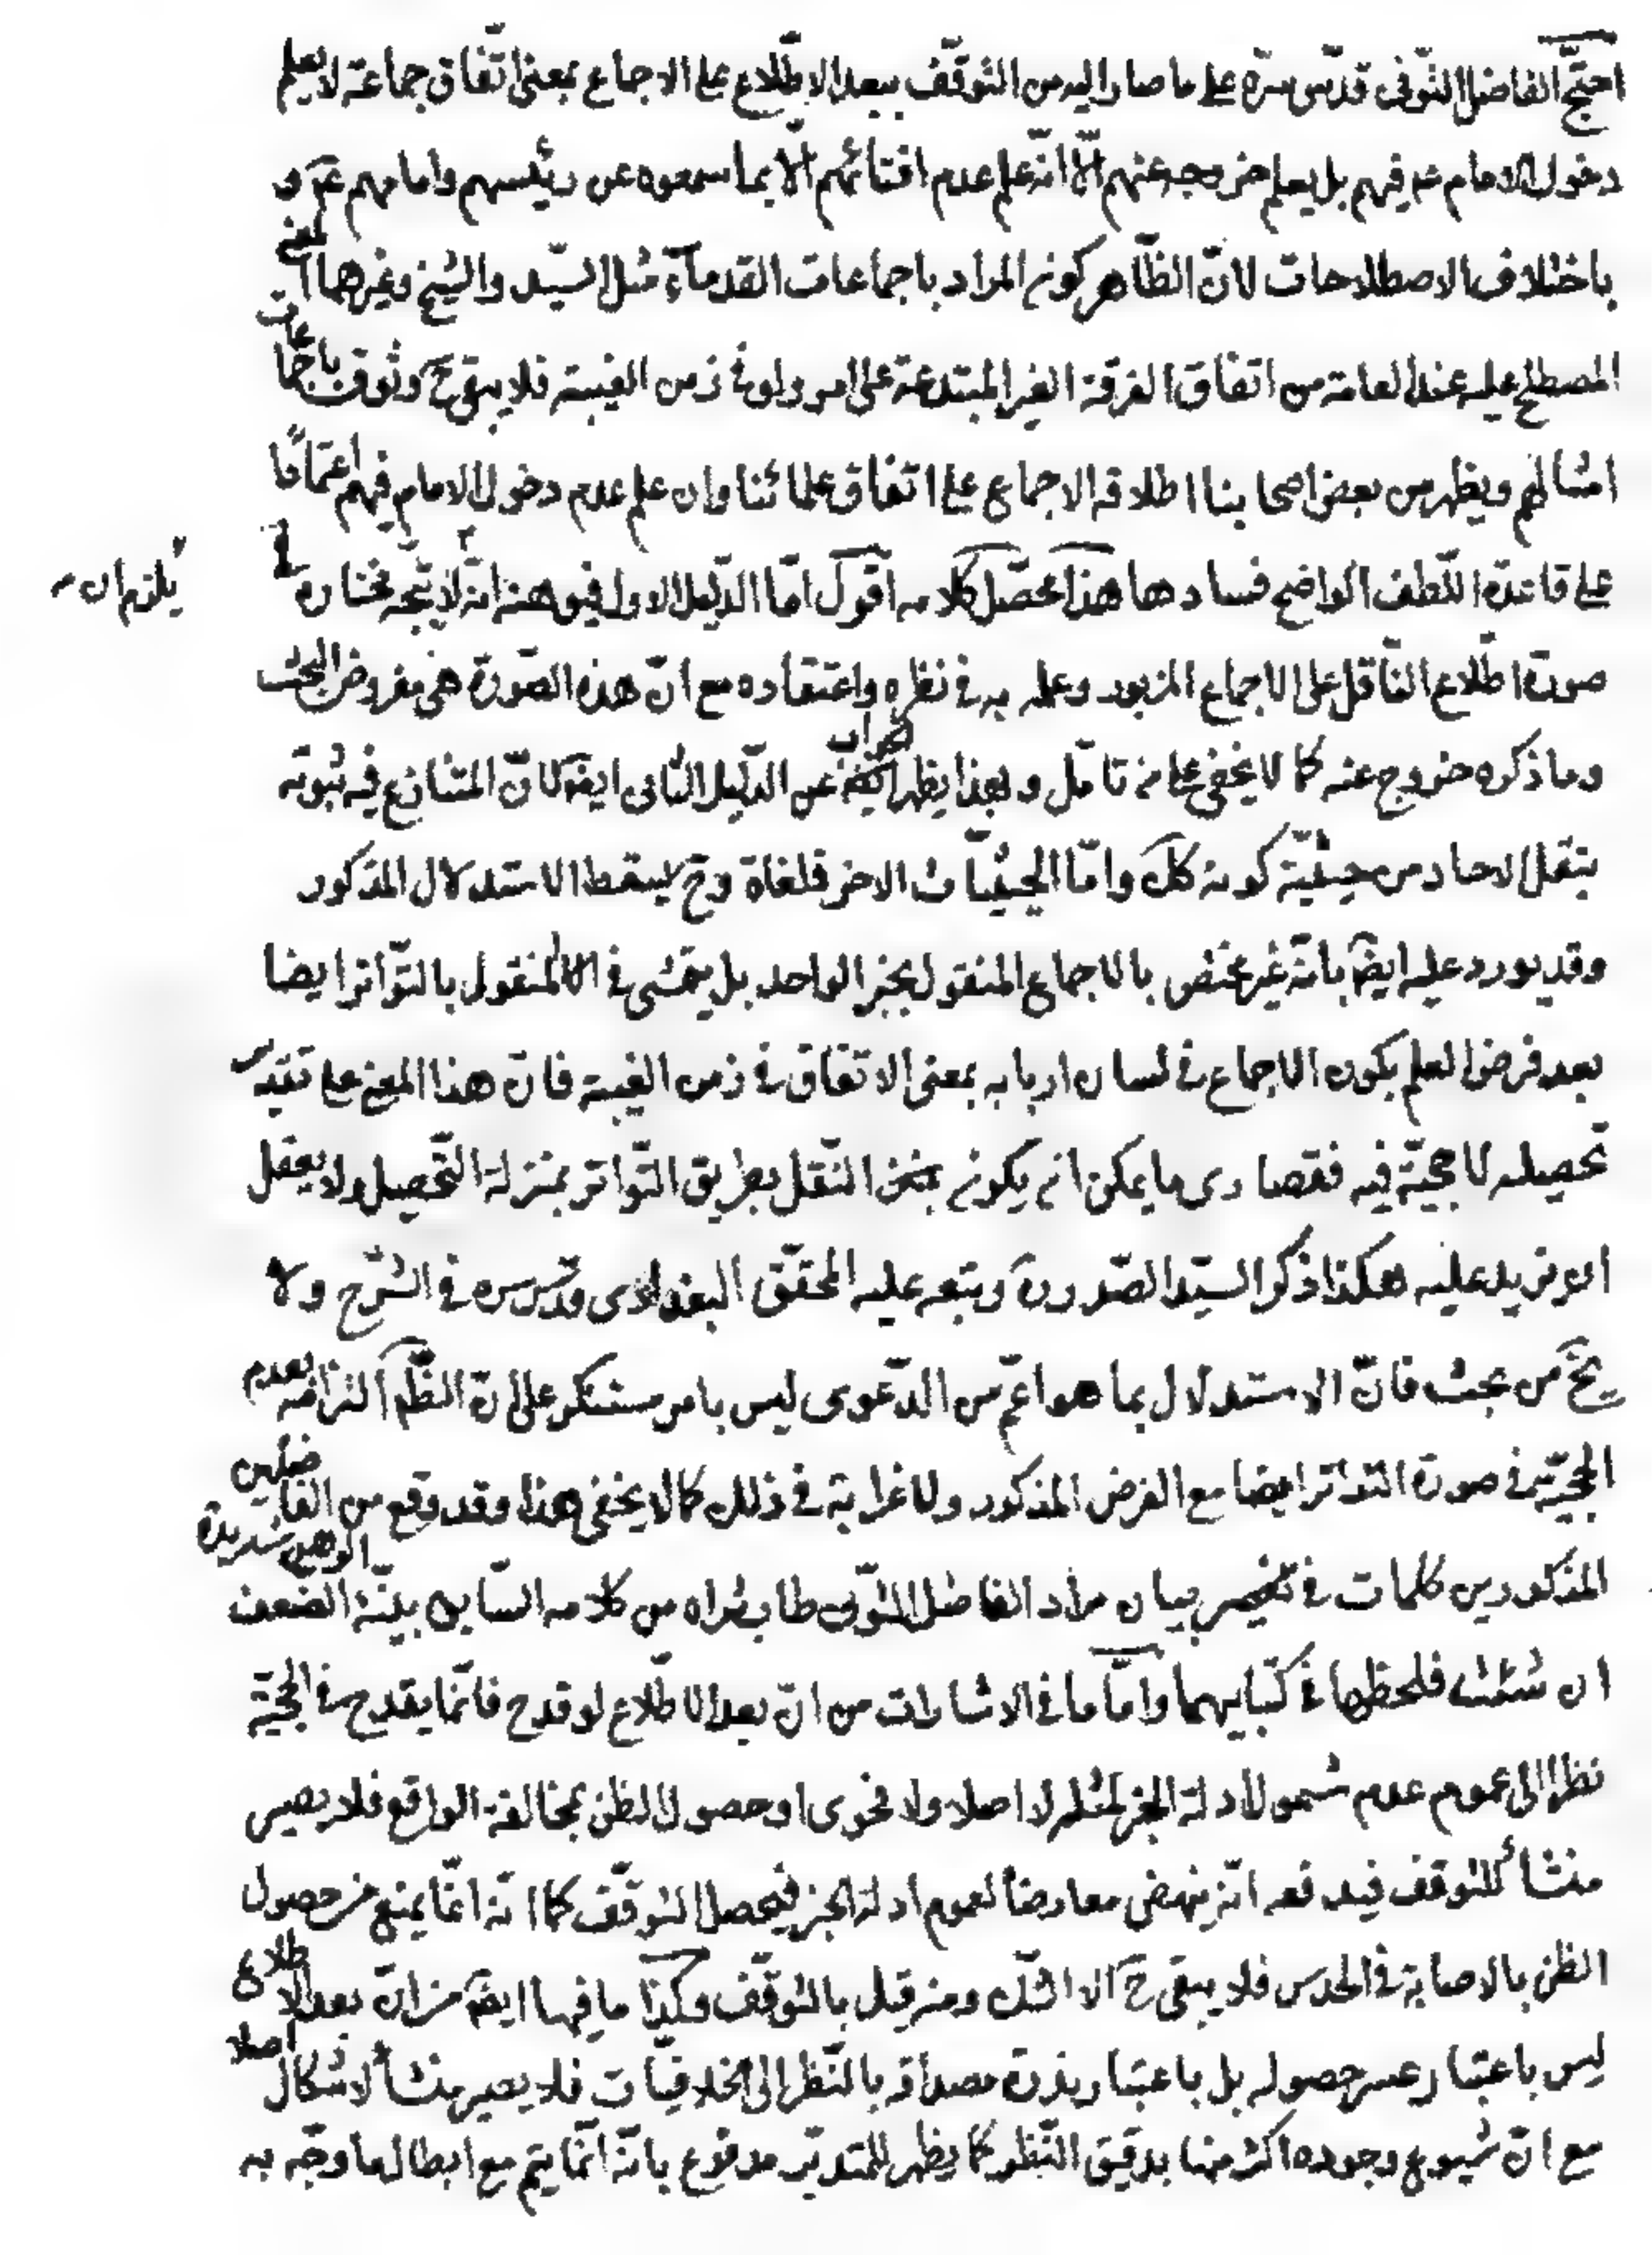 احتجّ الفاضل التّوفى قدّس سرّه على ما صار اليه من التوقّف ببعد الاطّلاع على الاجماع بمعنى اتّفاق جماعة لا يعلم
دخول الامام عه فيهم بل يعلم خروجه عنهم الّا انّه علم عدم افتائهم الّا بما سمعوه عن رئيسهم وامامهم عه و
باختلاف الاصطلاحات لانّ الظّاهر كونه المراد باجماعات القدماء مثل السيّد والشيخ وغيرهما المعنى
المصطلح عليه عند العامة من اتفاق الفرقة الغير المبتدعة على امر ولو فى زمن الغيبة فلا يبقى ح وثوق باجماعات
امثالهم ويظهر من بعض اصحابنا اطلاقه الاجماع على اتفاق علمائنا وان علم عدم دخول الامام فيهم اعتمادا
على قاعدة اللّطف الواضح فسادها هذا محصّل كلامه اقول امّا الدّليل الاول فيوهنه انّه لا يتّجه مختاره
يلزم ان
صورة اطّلاع النّاقل على الاجماع المزبور وعلمه به فى نظره واعتقاده مع انّ هذه الصّورة هى مفروض البحث
وما ذكره خروج عنه كما لا يخفى على من تامّل وبهذا يظهر الجواب عن الدّليل الثّانى ايضا لانّ المتنازع فيه ثبوته
بنقل الاحاد من حيثيّة كونه كك وامّا الحيثيّات الاخر فملغاة وح يسقط الاستدلال المذكور
وقد يورد عليه ايضا بانّه غير مختص بالاجماع المنقول بخبر الواحد بل يتمشى فى المنقول بالتّواتر ايضا
بعد فرض العلم بكون الاجماع فى لسان اربابه بمعنى الاتفاق فى زمن الغيبة فانّ هذا المعنى على تقدير
تحصيله لا حجيّة فيه فقصارى ما يمكن انه يكون النّقل بطريق التّواتر بمنزلة التّحصيل ولا يعقل
ان يزيد عليه هكذا ذكر السيّد الصّدر ره وتبعه عليه المحقّق البغدادى قدّس سره فى الشّرح ولا
يخ من بحث فانّ الاستدلال بما هو اعمّ من الدّعوى ليس بامر مستنكر على انّ الظّم التزامه بعدم
الحجيّة فى صورة التواتر ايضا مع الفرض المذكور ولا غرابة فى ذلك كما لا يخفى هذا وقد وقع من الفاضلين
المذكورين كلمات فى بيان مراد الفاضل التّونى طاب ثراه من كلامه السّابق بيّنة الضعف شديدة الوهن
ان شئت فلحظها فى كتابيهما وامّا ما فى الاشارات من انّ بعد الاطّلاع لو قدح فانّما يقدح فى الحجيّة
نظرا الى عموم عدم شمول ادلة الخبر لمثله لا اصلا ولا فحوى او حصول الظن بمخالفة الواقع فلا يصير
منشأ للتوقف فيدفعه انّه ينهض معارضا لعموم ادلة الخبر فيحصل التوقّف كما انّه انّما يمنع من حصول
الظن بالاصابة فى الحدس فلا يبقى ح الا الشّك ومنه قيل بالتوقّف وكذا ما فيها ايضا من انّ بعد الاطلاع
ليس باعتبار عسر حصوله بل باعتبار ندرة مصداقه بالنّظر الى الخلافيّات فلا يصير منشأ لاشكال اصلا
مع انّ شيوع وجوده اكثر منها بدقيق النّظر كما يظهر للمتدبّر مدفوع بانّه انّما يتم مع ابطال ما وجّه به